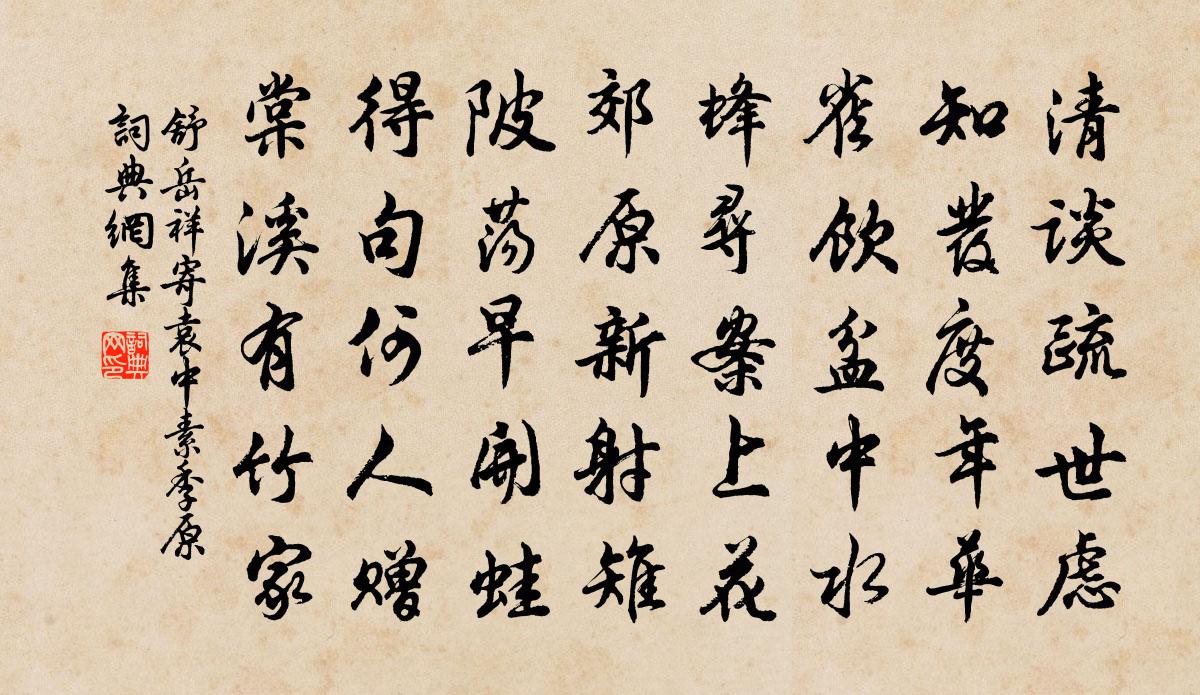 清談疏世慮
知裝度年華
雀飲盆中水
蜂尋案上花
郊原新射雉
陂蕩早開蛙
得句何人贈
棠溪有竹家
舒岳祥寄袁中素季原
詞典網集
詞典
网印